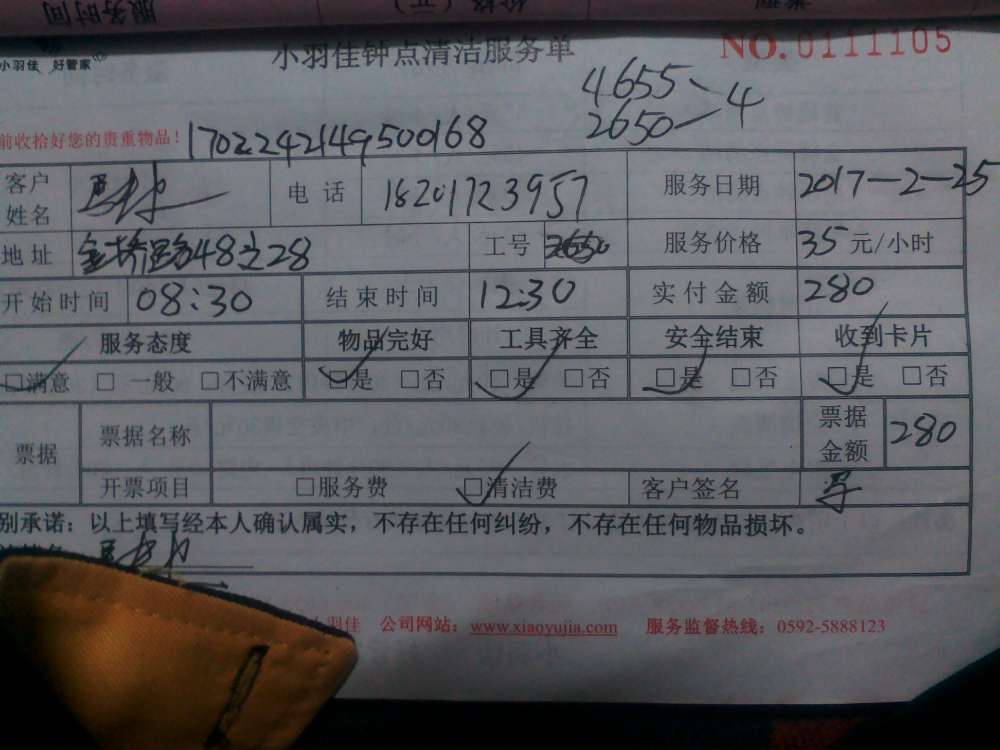 服务时间 价格（元）
小羽佳 好管家
小羽佳钟点清洁服务单 NO.0111105
4655 4
2650
前收拾好您的贵重物品！ 1702242149500168
客户姓名 电话 18201723957 服务日期 2017-2-25
地址 48之28 工号 2650 服务价格 35元/小时
开始时间 08:30 结束时间 12:30 实付金额 280
服务态度 物品完好 工具齐全 安全结束 收到卡片
□满意 □一般 □不满意 □是 □否 □是 □否 □是 □否 □是 □否
票据 票据名称 票据金额 280
开票项目 □服务费 □清洁费 客户签名
别承诺：以上填写经本人确认属实，不存在任何纠纷，不存在任何物品损坏。
羽佳 公司网站：www.xiaoyujia.com 服务监督热线：0592-5888123